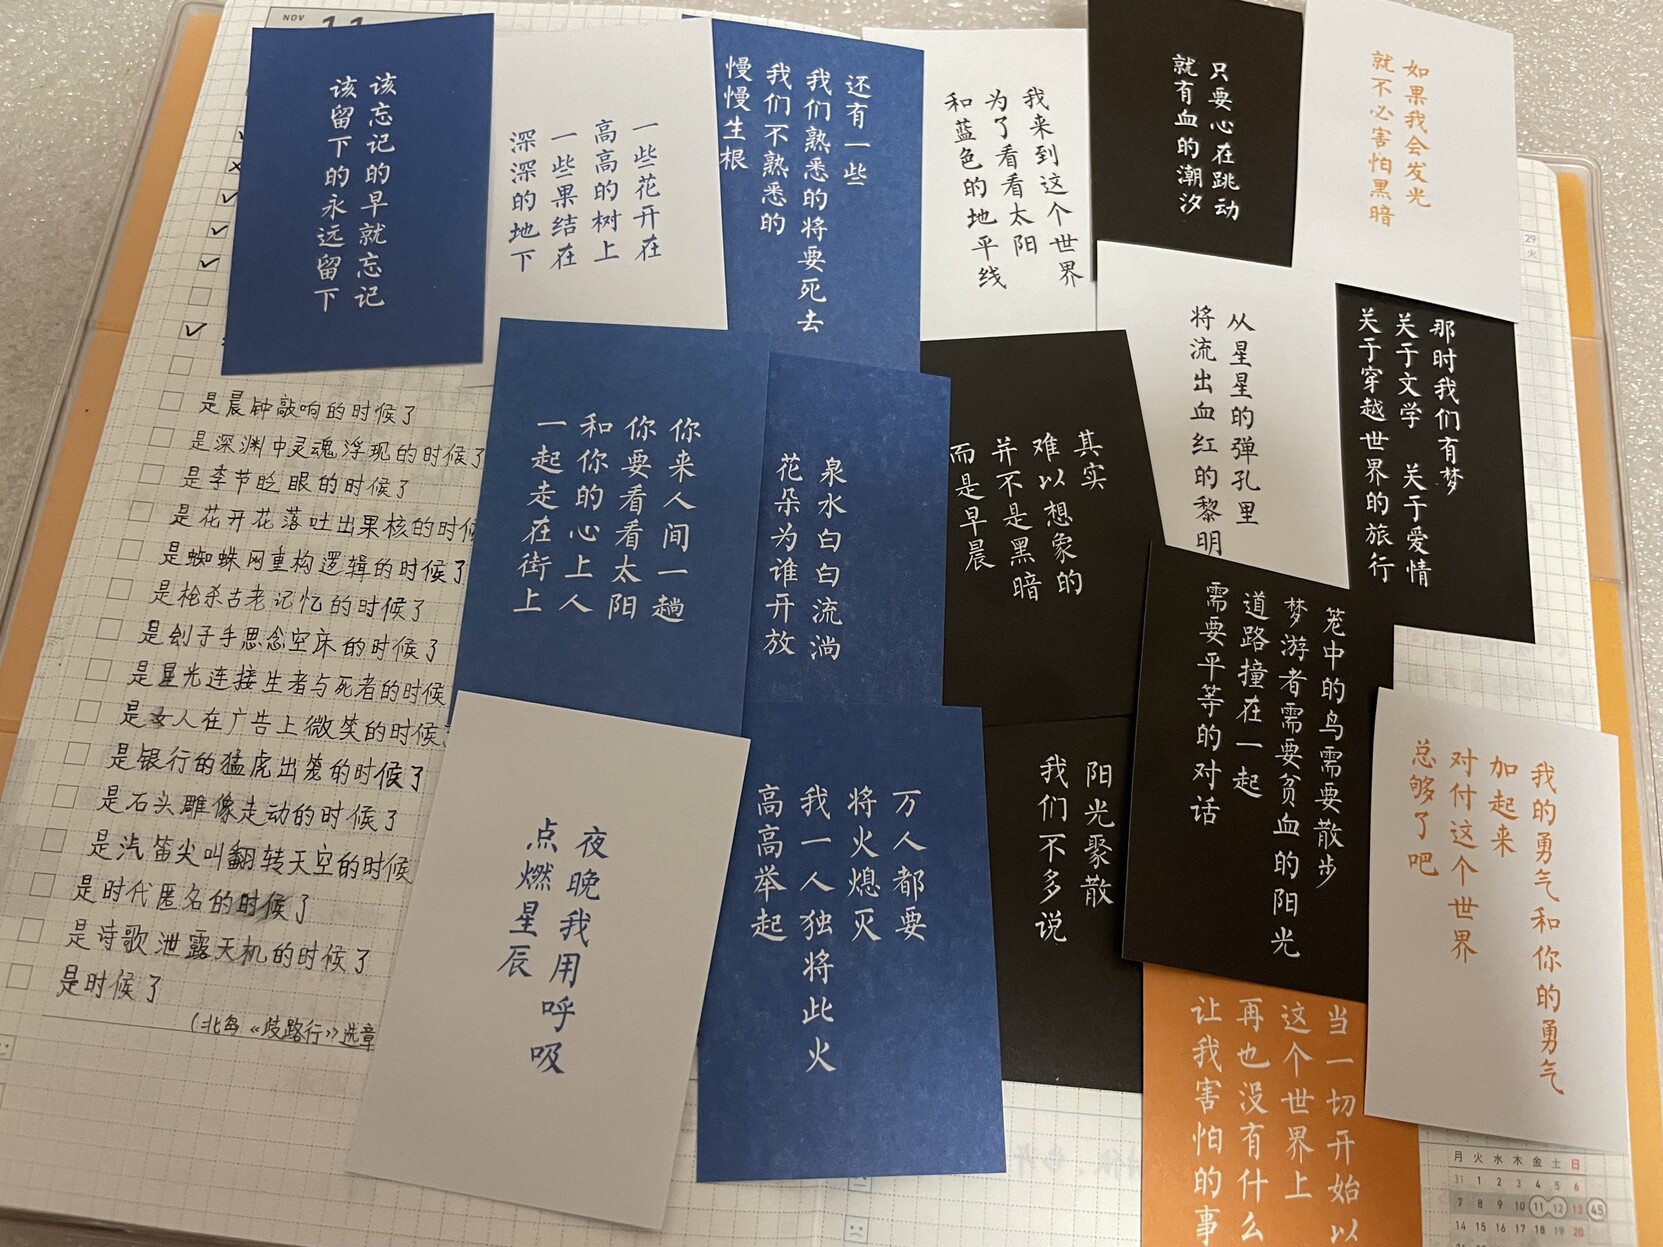 NOV
11
该忘记的早就忘记
该留下的永远留下
一些花开在
高高的树上
一些果结在
深深的地下
还有一些
我们熟悉的将要死去
我们不熟悉的
慢慢生根
我来到这个世界
为了看看太阳
和蓝色的地平线
只要心在跳动
就有血的潮汐
如果我会发光
就不必害怕黑暗
是晨钟敲响的时候了
是深渊中灵魂浮现的时候了
是季节眨眼的时候了
是花开花落吐出果核的时候
是蜘蛛网重构逻辑的时候了
是枪杀古老记忆的时候了
是刽子手思念空床的时候了
是星光连接生者与死者的时候
是女人在广告上微笑的时候
是银行的猛虎出笼的时候了
是石头雕像走动的时候了
是汽笛尖叫翻转天空的时候
是时代匿名的时候了
是诗歌泄露天机的时候了
是时候了
(北岛《歧路行》选章
你来人间一趟
你要看看太阳
和你的心上人
一起走在街上
泉水白白流淌
花朵为谁开放
其实
难以想象的
并不是黑暗
而是早晨
从星星的弹孔里
将流出血红的黎明
那时我们有梦
关于文学 关于爱情
关于穿越世界的旅行
夜晚我用呼吸
点燃星辰
万人都要
将火熄灭
我一人独将此火
高高举起
阳光聚散
我们不多说
笼中的鸟需要散步
梦游者需要贫血的阳光
道路撞在一起
需要平等的对话
我的勇气和你的勇气
加起来
对付这个世界
总够了吧
当一切开始以
这个世界上
再也没有什么
让我害怕的事
29
火
月 火 水 木 金 土 日
31 1 2 3 4 5 6
7 8 9 10 11 12 13 45
14 15 16 17 18 19 20